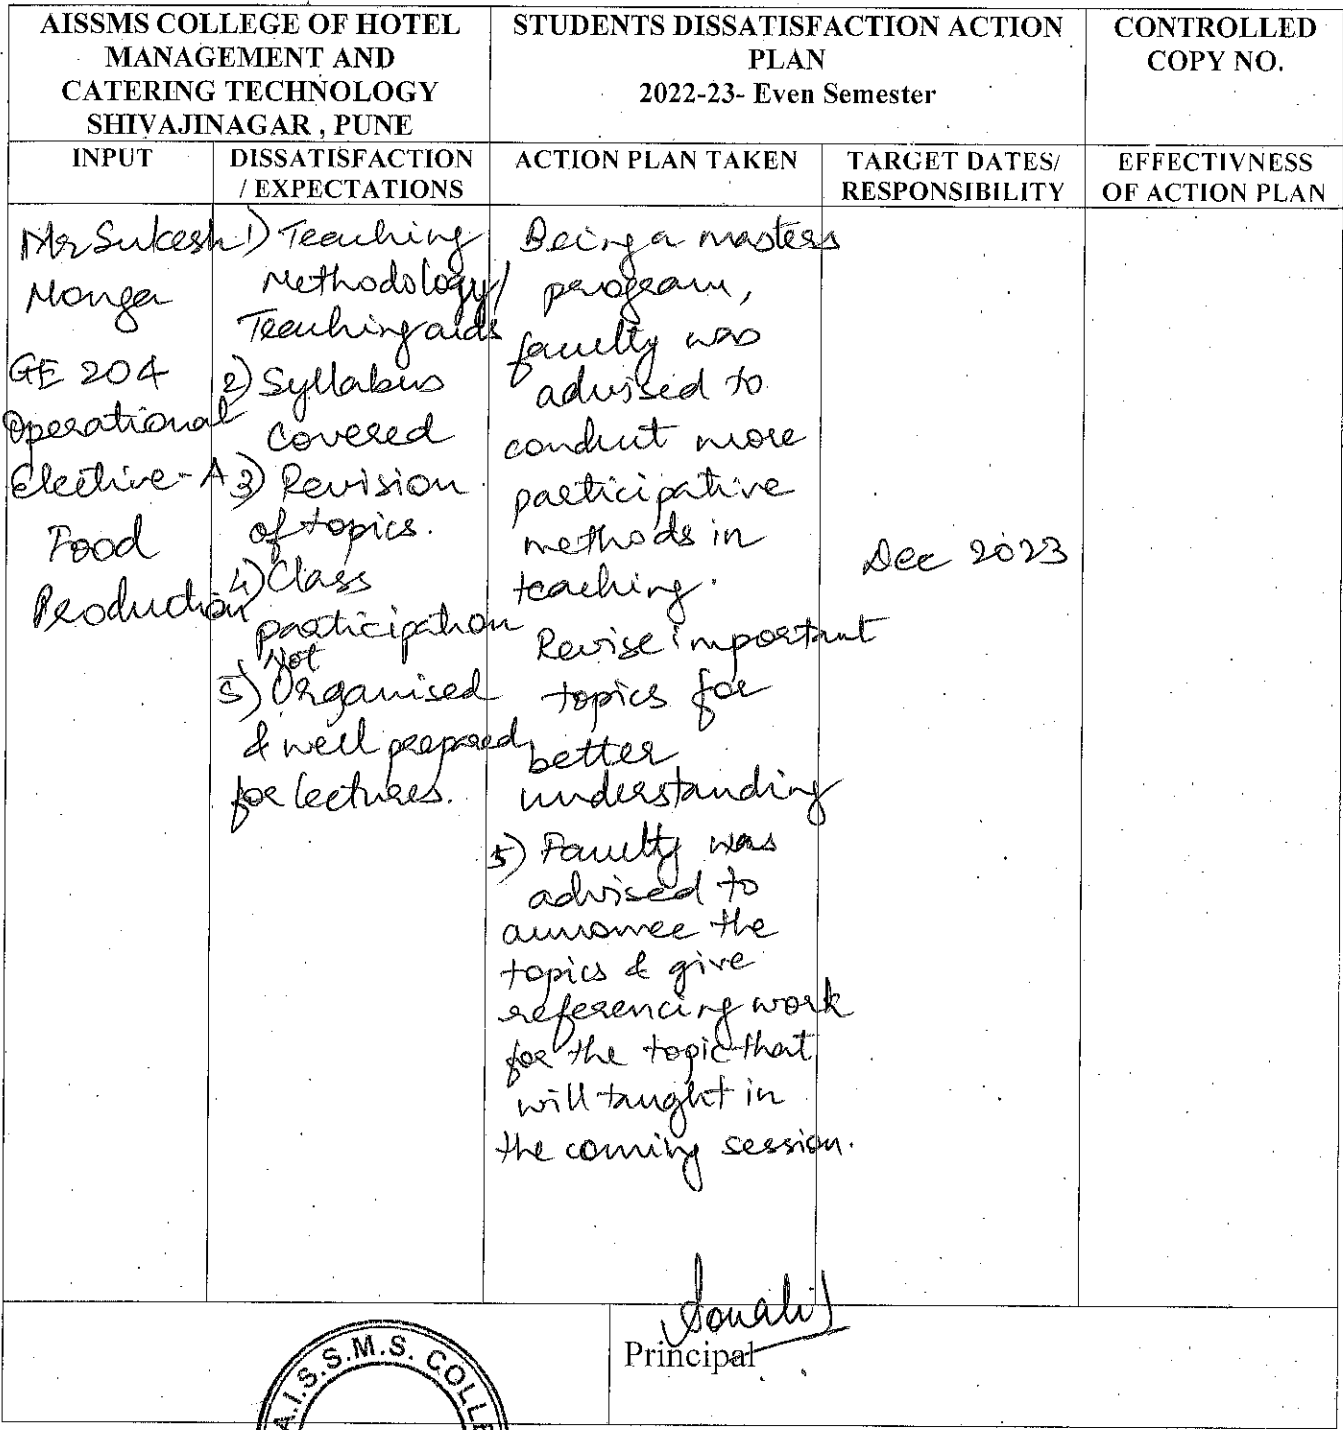 AISSMS COLLEGE OF HOTEL
MANAGEMENT AND
CATERING TECHNOLOGY
SHIVAJINAGAR , PUNE
STUDENTS DISSATISFACTION ACTION
PLAN
2022-23- Even Semester
CONTROLLED
COPY NO.
INPUT
DISSATISFACTION
/ EXPECTATIONS
ACTION PLAN TAKEN
TARGET DATES/
RESPONSIBILITY
EFFECTIVNESS
OF ACTION PLAN
Mr Sukesh
Monga
GE 204
Operational
Elective-A
Food
Production
1) Teaching
Methodology/
Teaching aids
2) Syllabus
covered
3) Revision
of topics.
4) Class
participation
Not
5) Organised
& well prepared
for lectures.
Being a masters
program,
faculty was
advised to
conduct more
participative
methods in
teaching.
Revise important
topics for
better
understanding
5) Faculty was
advised to
announce the
topics & give
referencing work
for the topic that
will taught in
the coming session.
Dec 2023
Sonali
Principal
A.I.S.S.M.S. COLLE